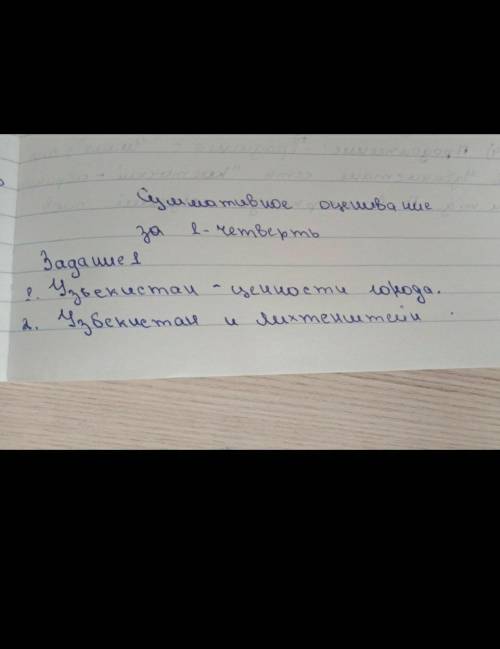 Суммативное оценивание
за 1-четверть
Задание 1
1. Узбекистан - ценности города.
2. Узбекистан и Лихтенштейн